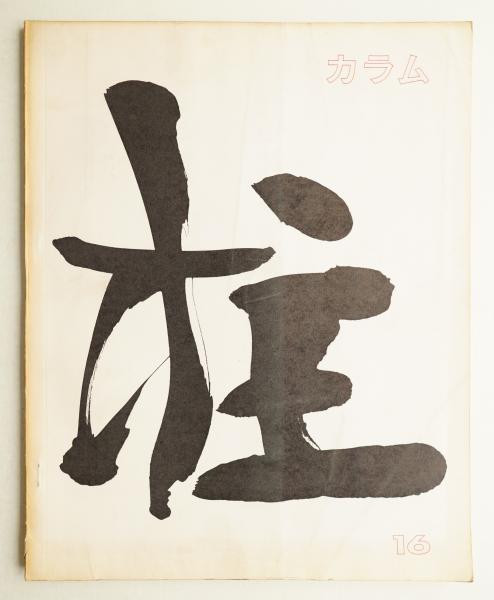 カラム
柱
16